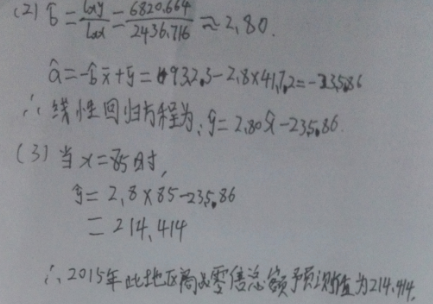 (2) b̂ = Lxy/Lxx = 6820.664/2436.716 ≈ 2.80.
â = -b̂x̄+ȳ = 932.3-2.8×417.2 = -235.86
∴ 线性回归方程为: ŷ = 2.80x̂-235.86.
(3) 当 x = 85时,
ŷ = 2.8×85-235.86
= 214.414
∴ 2015年此地区商品零售总额预测值为214.414.